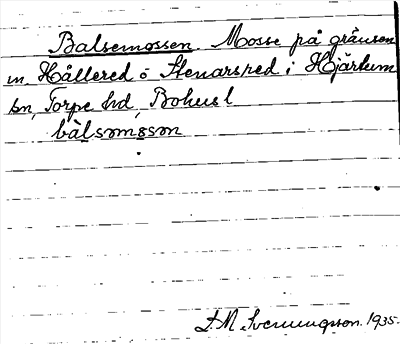 Balsemossen. Mosse på gränsen
m. Hållered o Stenarsred i Hjärtum
sn, Torpe hd, Bohusl
bàlsəmɔsən
J. M. Svenungsson. 1935.